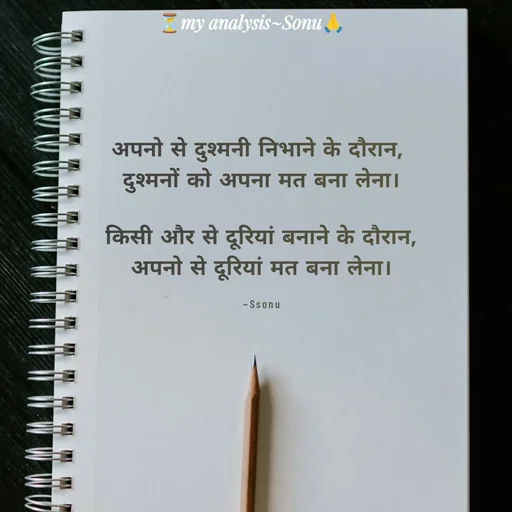 ⏳my analysis~Sonu🙏
अपनो से दुश्मनी निभाने के दौरान,
दुश्मनों को अपना मत बना लेना।
किसी और से दूरियां बनाने के दौरान,
अपनो से दूरियां मत बना लेना।
~Ssonu